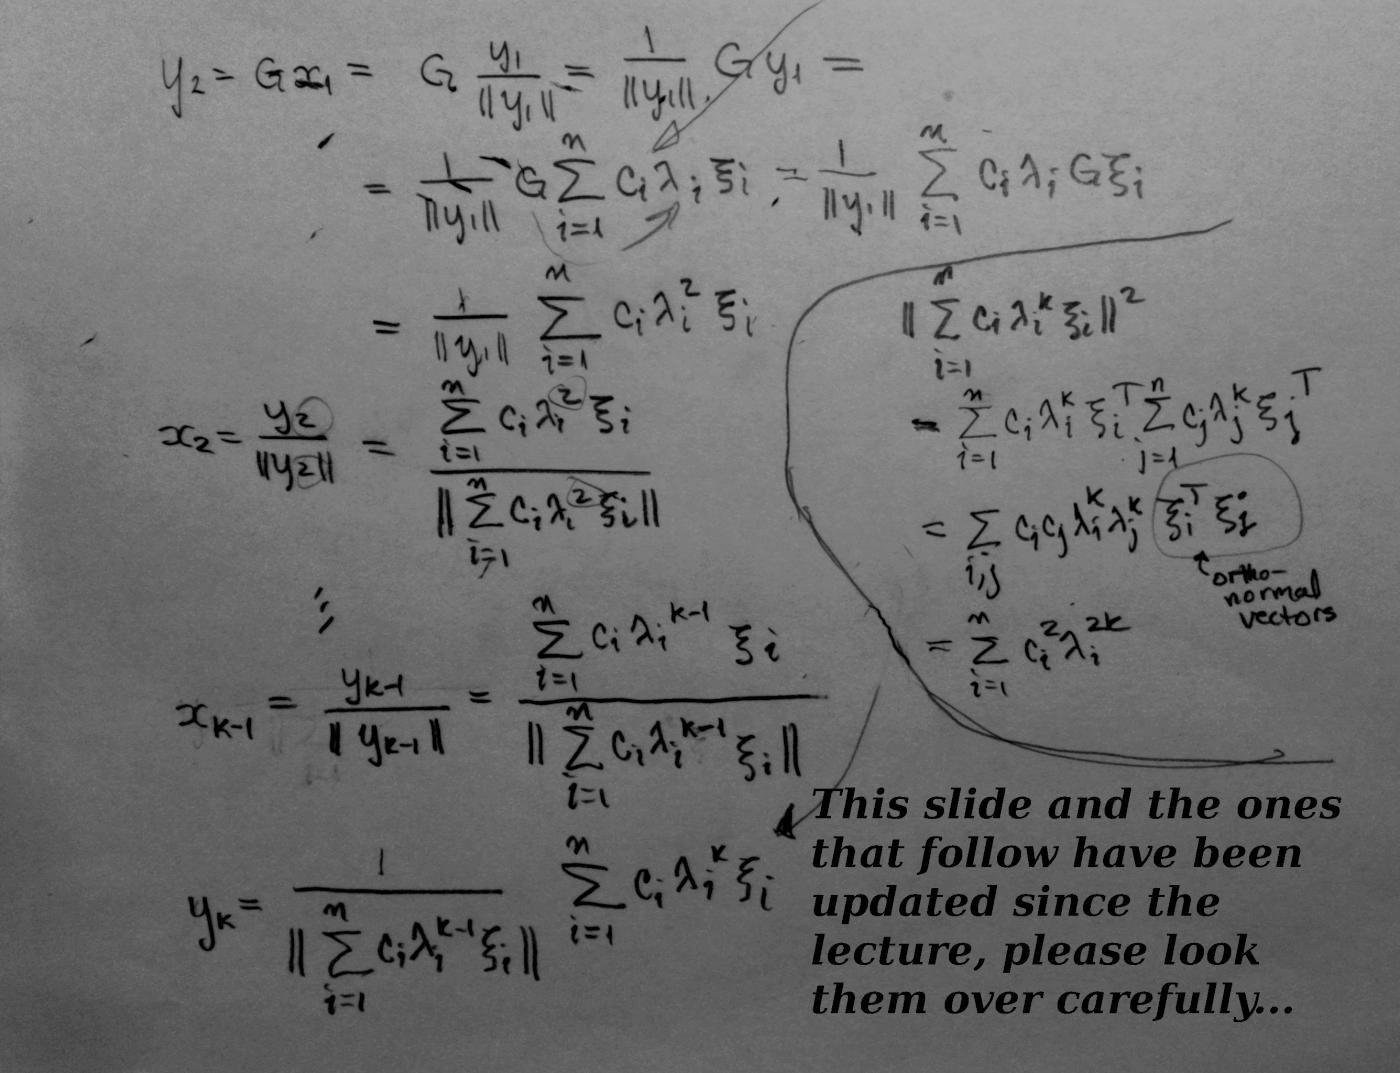 y₂ = Gx₁ = G y₁/‖y₁‖ = 1/‖y₁‖ . G y₁ =
= 1/‖y₁‖ G ∑ᵢ₌₁ⁿ cᵢ λᵢ ξᵢ = 1/‖y₁‖ ∑ᵢ₌₁ⁿ cᵢ λᵢ G ξᵢ
= 1/‖y₁‖ ∑ᵢ₌₁ⁿ cᵢ λᵢ² ξᵢ
x₂ = y₂/‖y₂‖ = ∑ᵢ₌₁ⁿ cᵢ λᵢ² ξᵢ / ‖∑ᵢ₌₁ⁿ cᵢ λᵢ² ξᵢ‖
xₖ₋₁ = yₖ₋₁/‖yₖ₋₁‖ = ∑ᵢ₌₁ⁿ cᵢ λᵢᵏ⁻¹ ξᵢ / ‖∑ᵢ₌₁ⁿ cᵢ λᵢᵏ⁻¹ ξᵢ‖
yₖ = 1/‖∑ᵢ₌₁ⁿ cᵢ λᵢᵏ⁻¹ ξᵢ‖ ∑ᵢ₌₁ⁿ cᵢ λᵢᵏ ξᵢ
‖∑ᵢ₌₁ⁿ cᵢ λᵢᵏ ξᵢ‖²
= ∑ᵢ₌₁ⁿ cᵢ λᵢᵏ ξᵢᵀ ∑ⱼ₌₁ⁿ cⱼ λⱼᵏ ξⱼᵀ
= ∑ᵢ,ⱼ cᵢ cⱼ λᵢᵏ λⱼᵏ ξᵢᵀ ξⱼ
ortho-
normal
vectors
= ∑ᵢ₌₁ⁿ cᵢ² λᵢ²ᵏ
This slide and the ones
that follow have been
updated since the
lecture, please look
them over carefully...